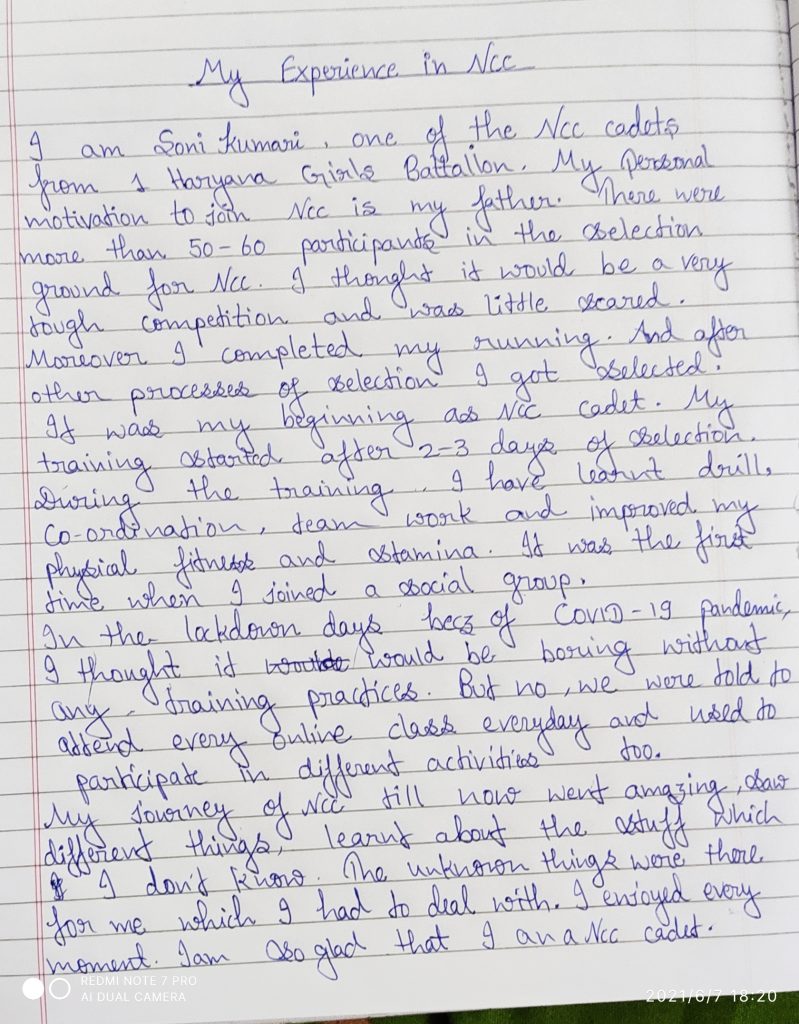 My Experience in Ncc
I am Soni Kumari, one of the Ncc cadets
from 1 Haryana Girls Battalion. My Personal
motivation to join Ncc is my father. There were
more than 50-60 participants in the selection
ground for Ncc. I thought it would be a very
tough competition and was little scared.
Moreover I completed my running. And after
other processes of selection I got selected.
It was my beginning as Ncc cadet. My
training started after 2-3 days of selection.
During the training, I have learnt drill,
Co-ordination, team work and improved my
physical fitness and stamina. It was the first
time when I joined a social group.
In the lockdown days becz of COVID-19 pandemic,
I thought it would be boring without
any training practices. But no, we were told to
attend every online class everyday and used to
participate in different activities too.
My Journey of Ncc till now went amazing, saw
different things, learnt about the stuff which
I don't know. The unknown things were there
for me which I had to deal with. I enjoyed every
moment. I am so glad that I an a Ncc cadet.
REDMI NOTE 7 PRO
AI DUAL CAMERA
2021/6/7 18:20